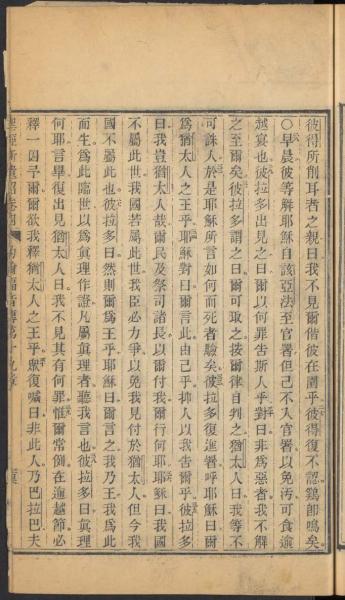 彼得所削耳者之親曰我不見爾偕彼在園乎彼得復不認鷄卽鳴矣
○早晨彼等解耶穌自該亞法至官署但己不入官署以免汚可食逾
越宴也彼拉多出見之曰爾以何罪告斯人乎對曰非爲惡者我不解
之至爾矣彼拉多謂之曰爾可取之按爾律自判之猶太人曰我等不
可誅人於是耶穌所言如何而死者驗矣彼拉多復進署呼耶穌曰爾
爲猶太人之王乎耶穌對曰爾言此由己乎抑人以我告爾乎彼拉多
曰我豈猶太人哉爾民及祭司諸長以爾付我爾行何耶耶穌曰我國
不屬此世我國若屬此世我臣必力爭以免我見付於猶太人但今我
國不屬此也彼拉多曰然則爾爲王乎耶穌曰爾言之我乃王我爲此
而生爲此臨世以爲眞理作證凡屬眞理者聽我言也彼拉多曰眞理
何耶言畢復出見猶太人曰我不見其有何罪惟爾常例在逾越節必
釋一囚乎爾爾欲我釋猶太人之王乎衆復喊曰非此人乃巴拉巴夫